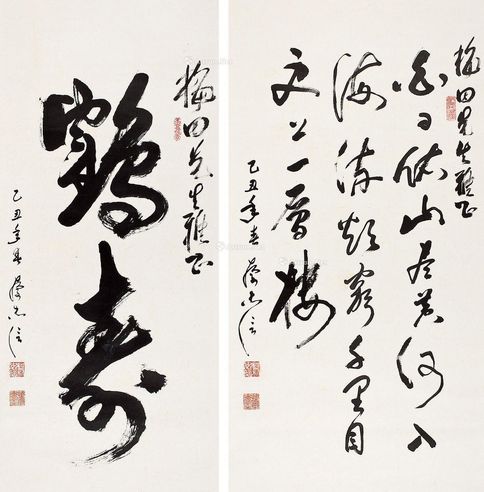 梅田先生雅正
白日依山尽黄河入
海流欲窮千里目
更上一層樓
乙丑年春
梅田先生雅正
鶴寿
乙丑年春